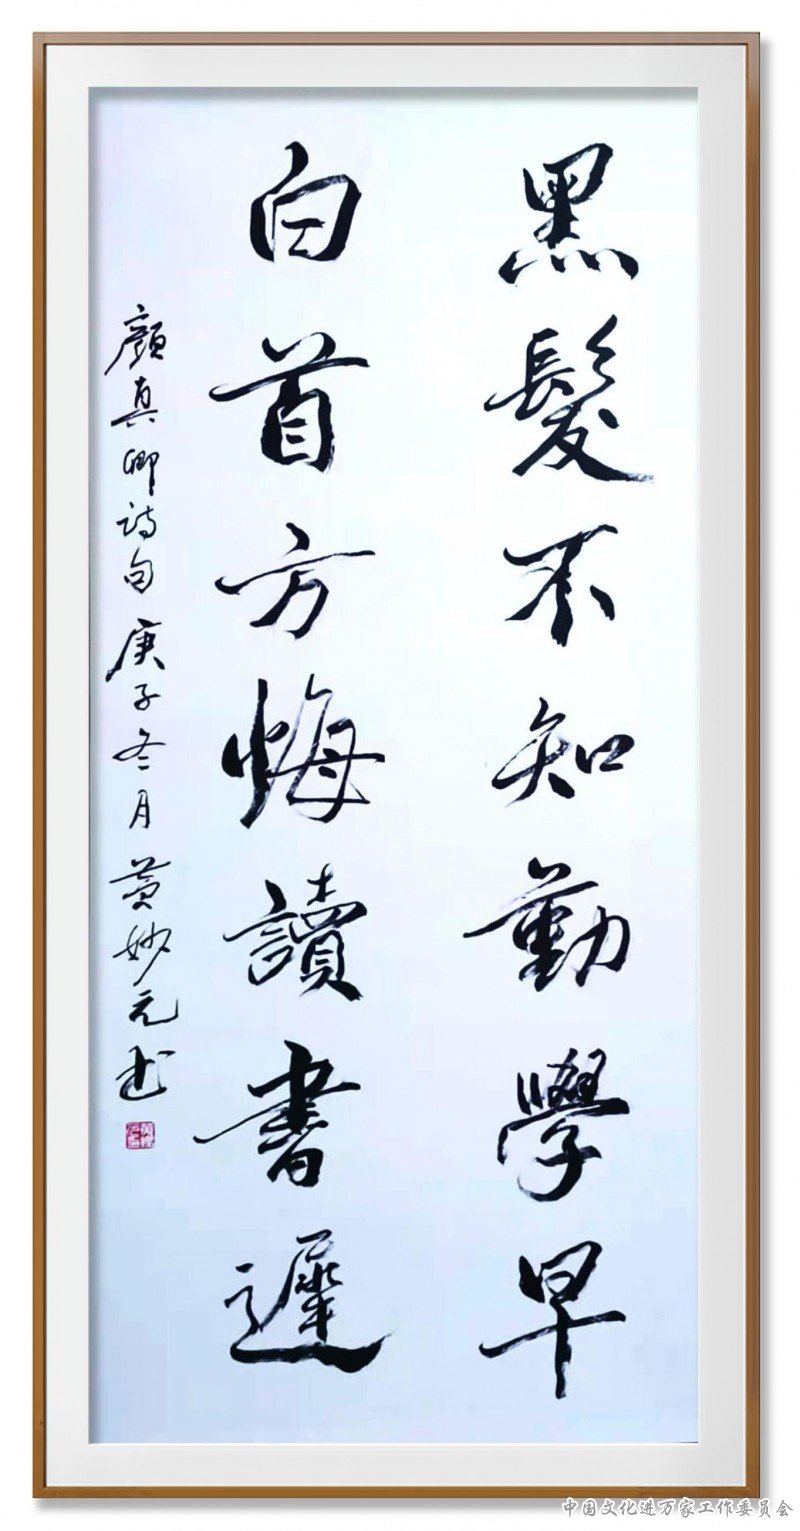 黑髮不知勤學早
白首方悔讀書遲
顏真卿詩句庚子冬月黃妙元书
中国文化进万家工作委员会